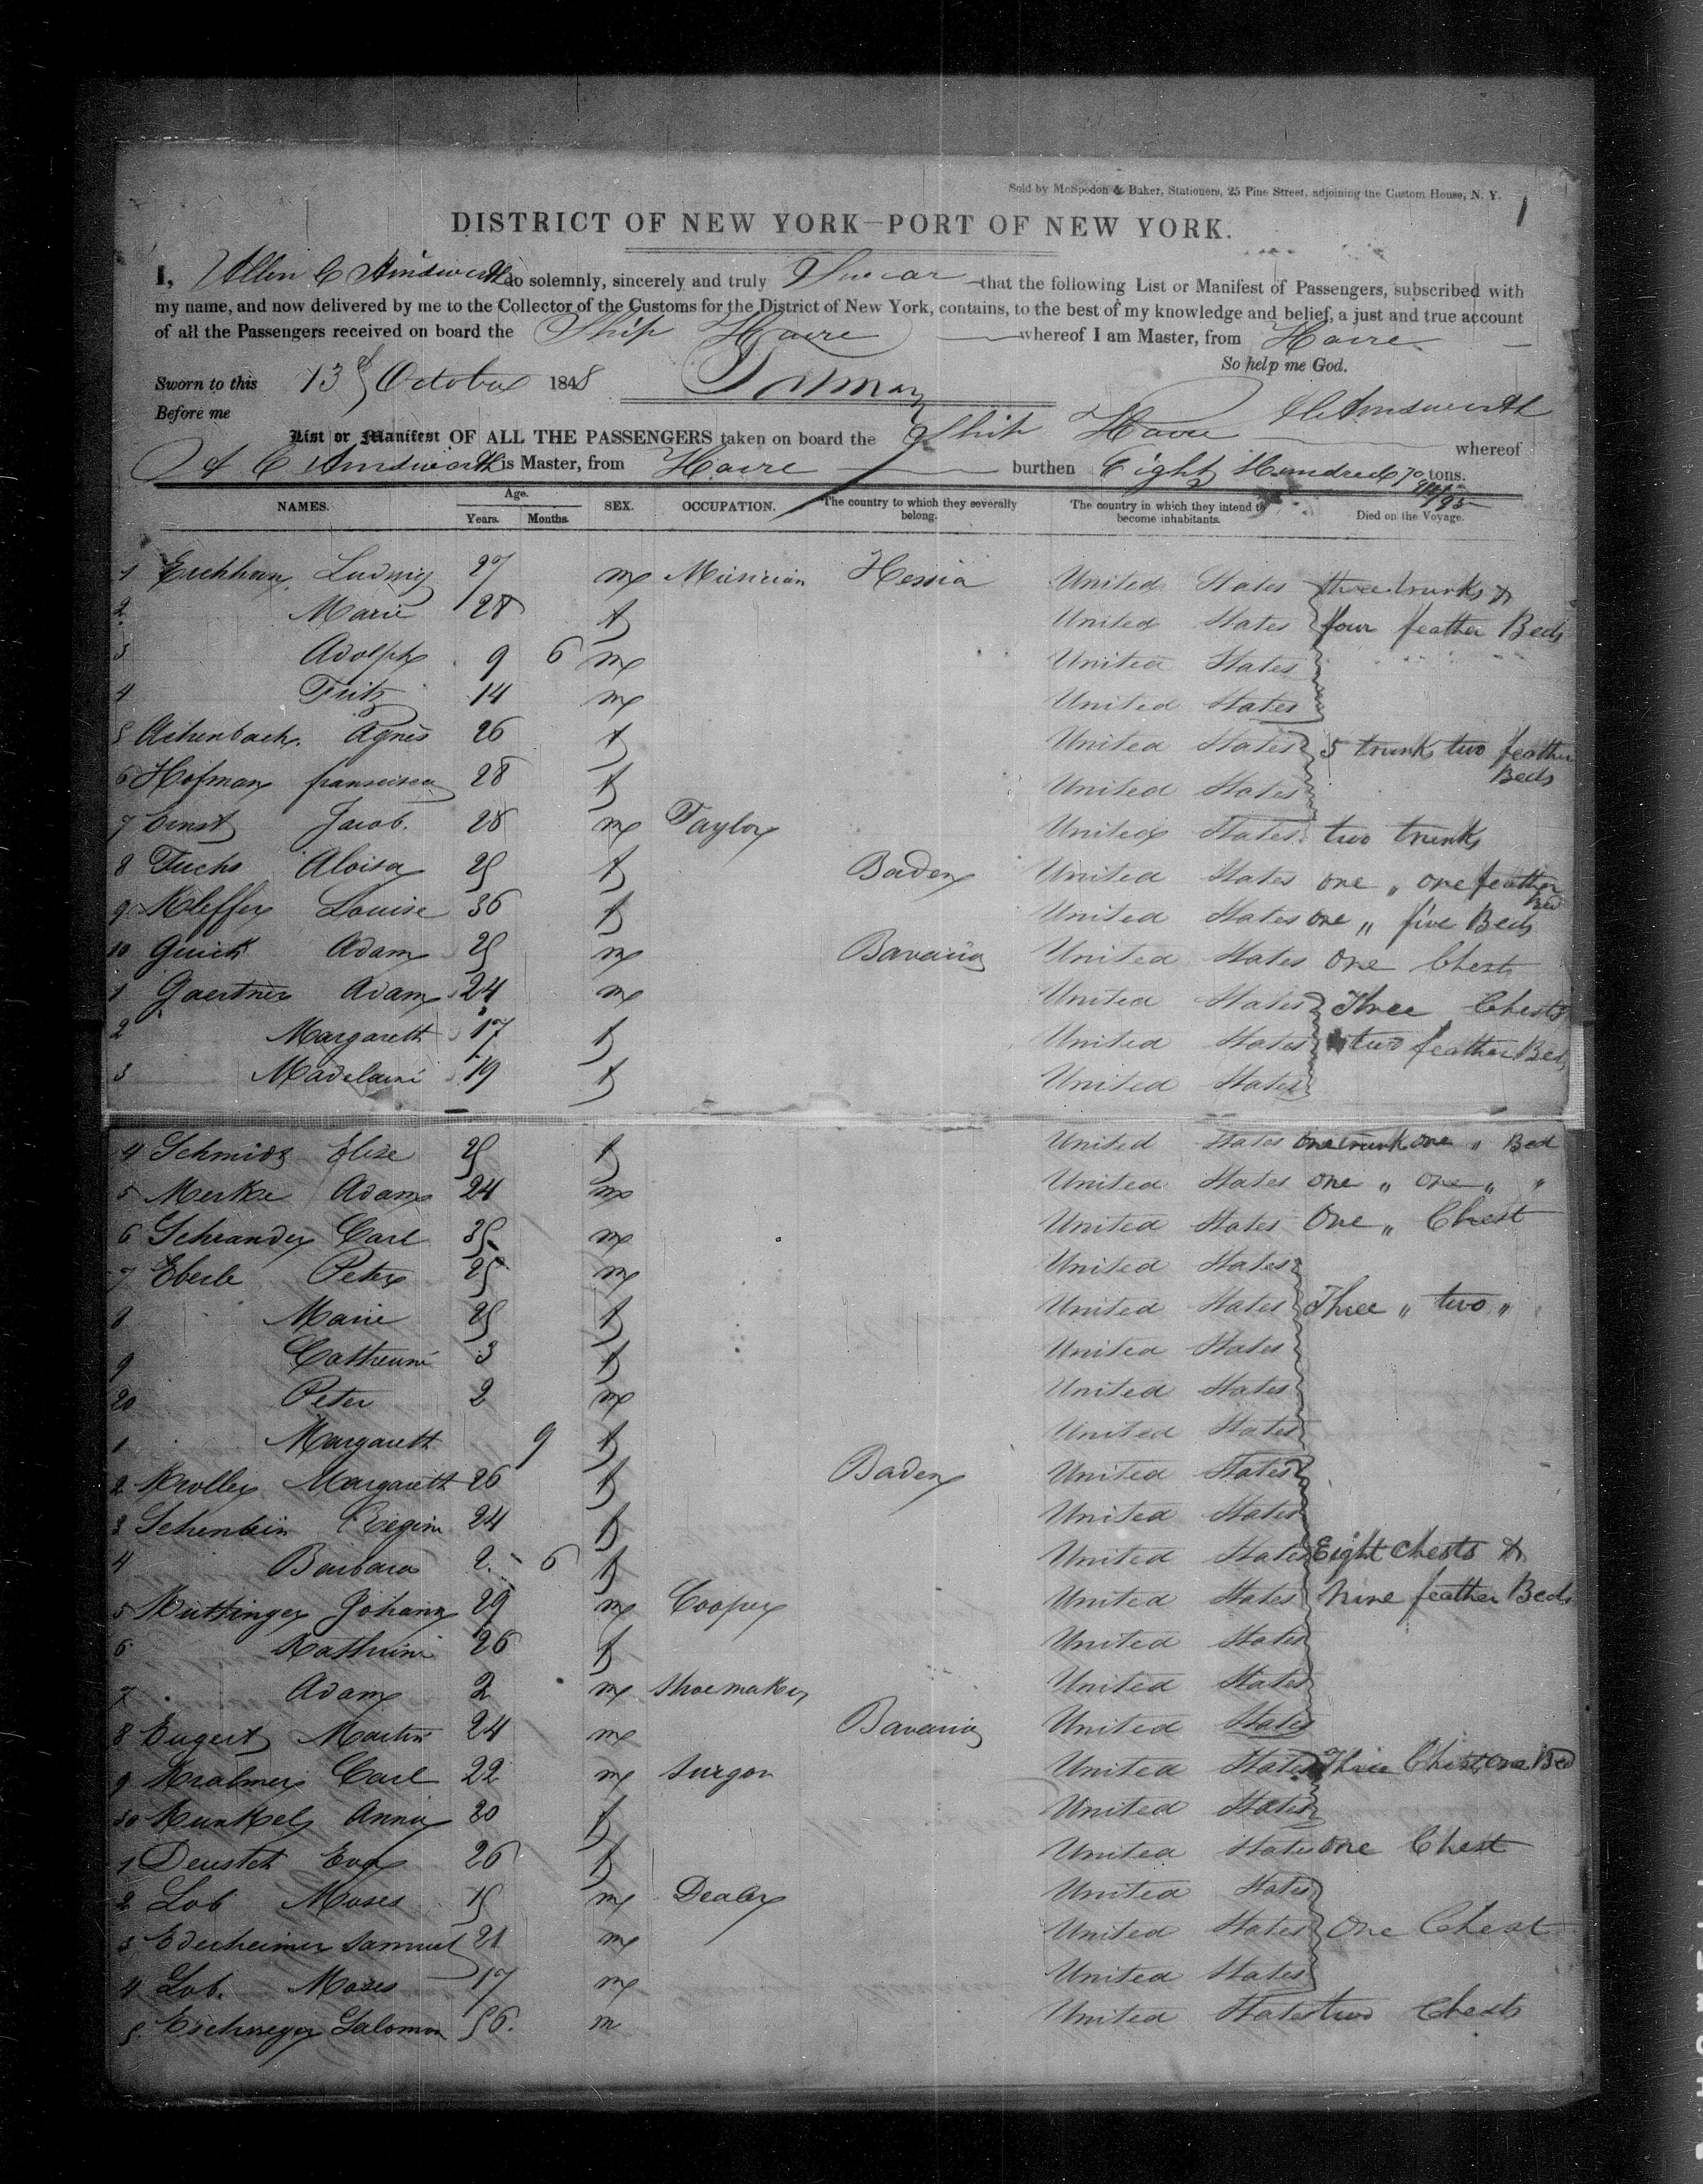 Sold by McSpedon & Baker, Stationers, 25 Pine Street, adjoining the Custom House, N. Y.
1
DISTRICT OF NEW YORK—PORT OF NEW YORK.
I, Allen C Ainsworth do solemnly, sincerely and truly Swear that the following List or Manifest of Passengers, subscribed with
my name, and now delivered by me to the Collector of the Customs for the District of New York, contains, to the best of my knowledge and belief, a just and true account
of all the Passengers received on board the Ship Havre whereof I am Master, from Havre
So help me God.
Sworn to this 13 October 1848
Before me
C Ainsworth
List or Manifest OF ALL THE PASSENGERS taken on board the Ship Havre whereof
A C Ainsworth is Master, from Havre burthen Eight Hundred 70 tons.
NAMES. Age. Years. Months. SEX. OCCUPATION. The country to which they severally belong. The country in which they intend to become inhabitants. Died on the Voyage.
1 Ludwig 27 m Musician Hessia United States three trunks &
2 Marie 28 f United States four feather Beds
3 Adolph 9 6 m United States
4 Fritz 14 m United States
5 Achenbach Agnes 26 f United States 5 trunks two feather Beds
6 Hofman 28 f United States
7 Ernst Jacob. 28 m Taylor United States two trunks
8 Fuchs Aloisa 25 f Baden United States one " one feather Bed
9 Kleffer Louise 36 f United States one " five Beds
10 Adam 25 m Bavaria United States One Chest
1 Gaertner Adam 24 m United States Three Chests
2 Margareth 17 f United States two feather Bed
3 Madelaine 19 f United States
4 Schmidt Elise 25 f United States one trunk one " Bed
5 Merkre Adam 24 m United States one " one " "
6 Schrander Carl 35 m United States One " Chest
7 Eberle Peter 25 m United States
8 Marie 25 f United States Three " two "
9 Catherine 3 f United States
20 Peter 2 m United States
1 Margareth 9 f United States
2 Kroller Margareth 26 f Baden United States
3 Regine 24 f United States
4 Barbara 2 6 f United States Eight Chests &
5 Johann 29 m Cooper United States Nine feather Beds
6 Kathrine 26 f United States
7 Adam 2 m Shoemaker United States
8 Eugert Martin 24 m Bavaria United States
9 Kralmer Carl 22 m Surgon United States Three Chests One Bed
30 Kunkel Anna 20 f United States
1 Eva 26 f United States one Chest
2 Lob Moses 15 m Dealer United States
3 Ederheimer Samuel 21 m United States One Chest
4 Lob. Moses 17 m United States
5 Eschweger Salomon 56. m United States two Chests